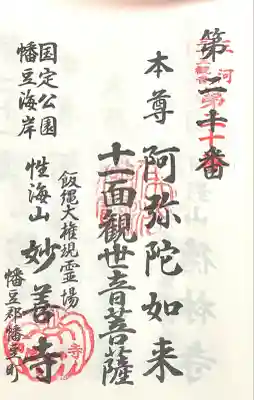 第二十番
本尊 阿弥陀如来
十一面観世音菩薩
飯縄大権現霊場
性海山 妙善寺
国定公園
幡豆海岸
幡豆郡幡豆町